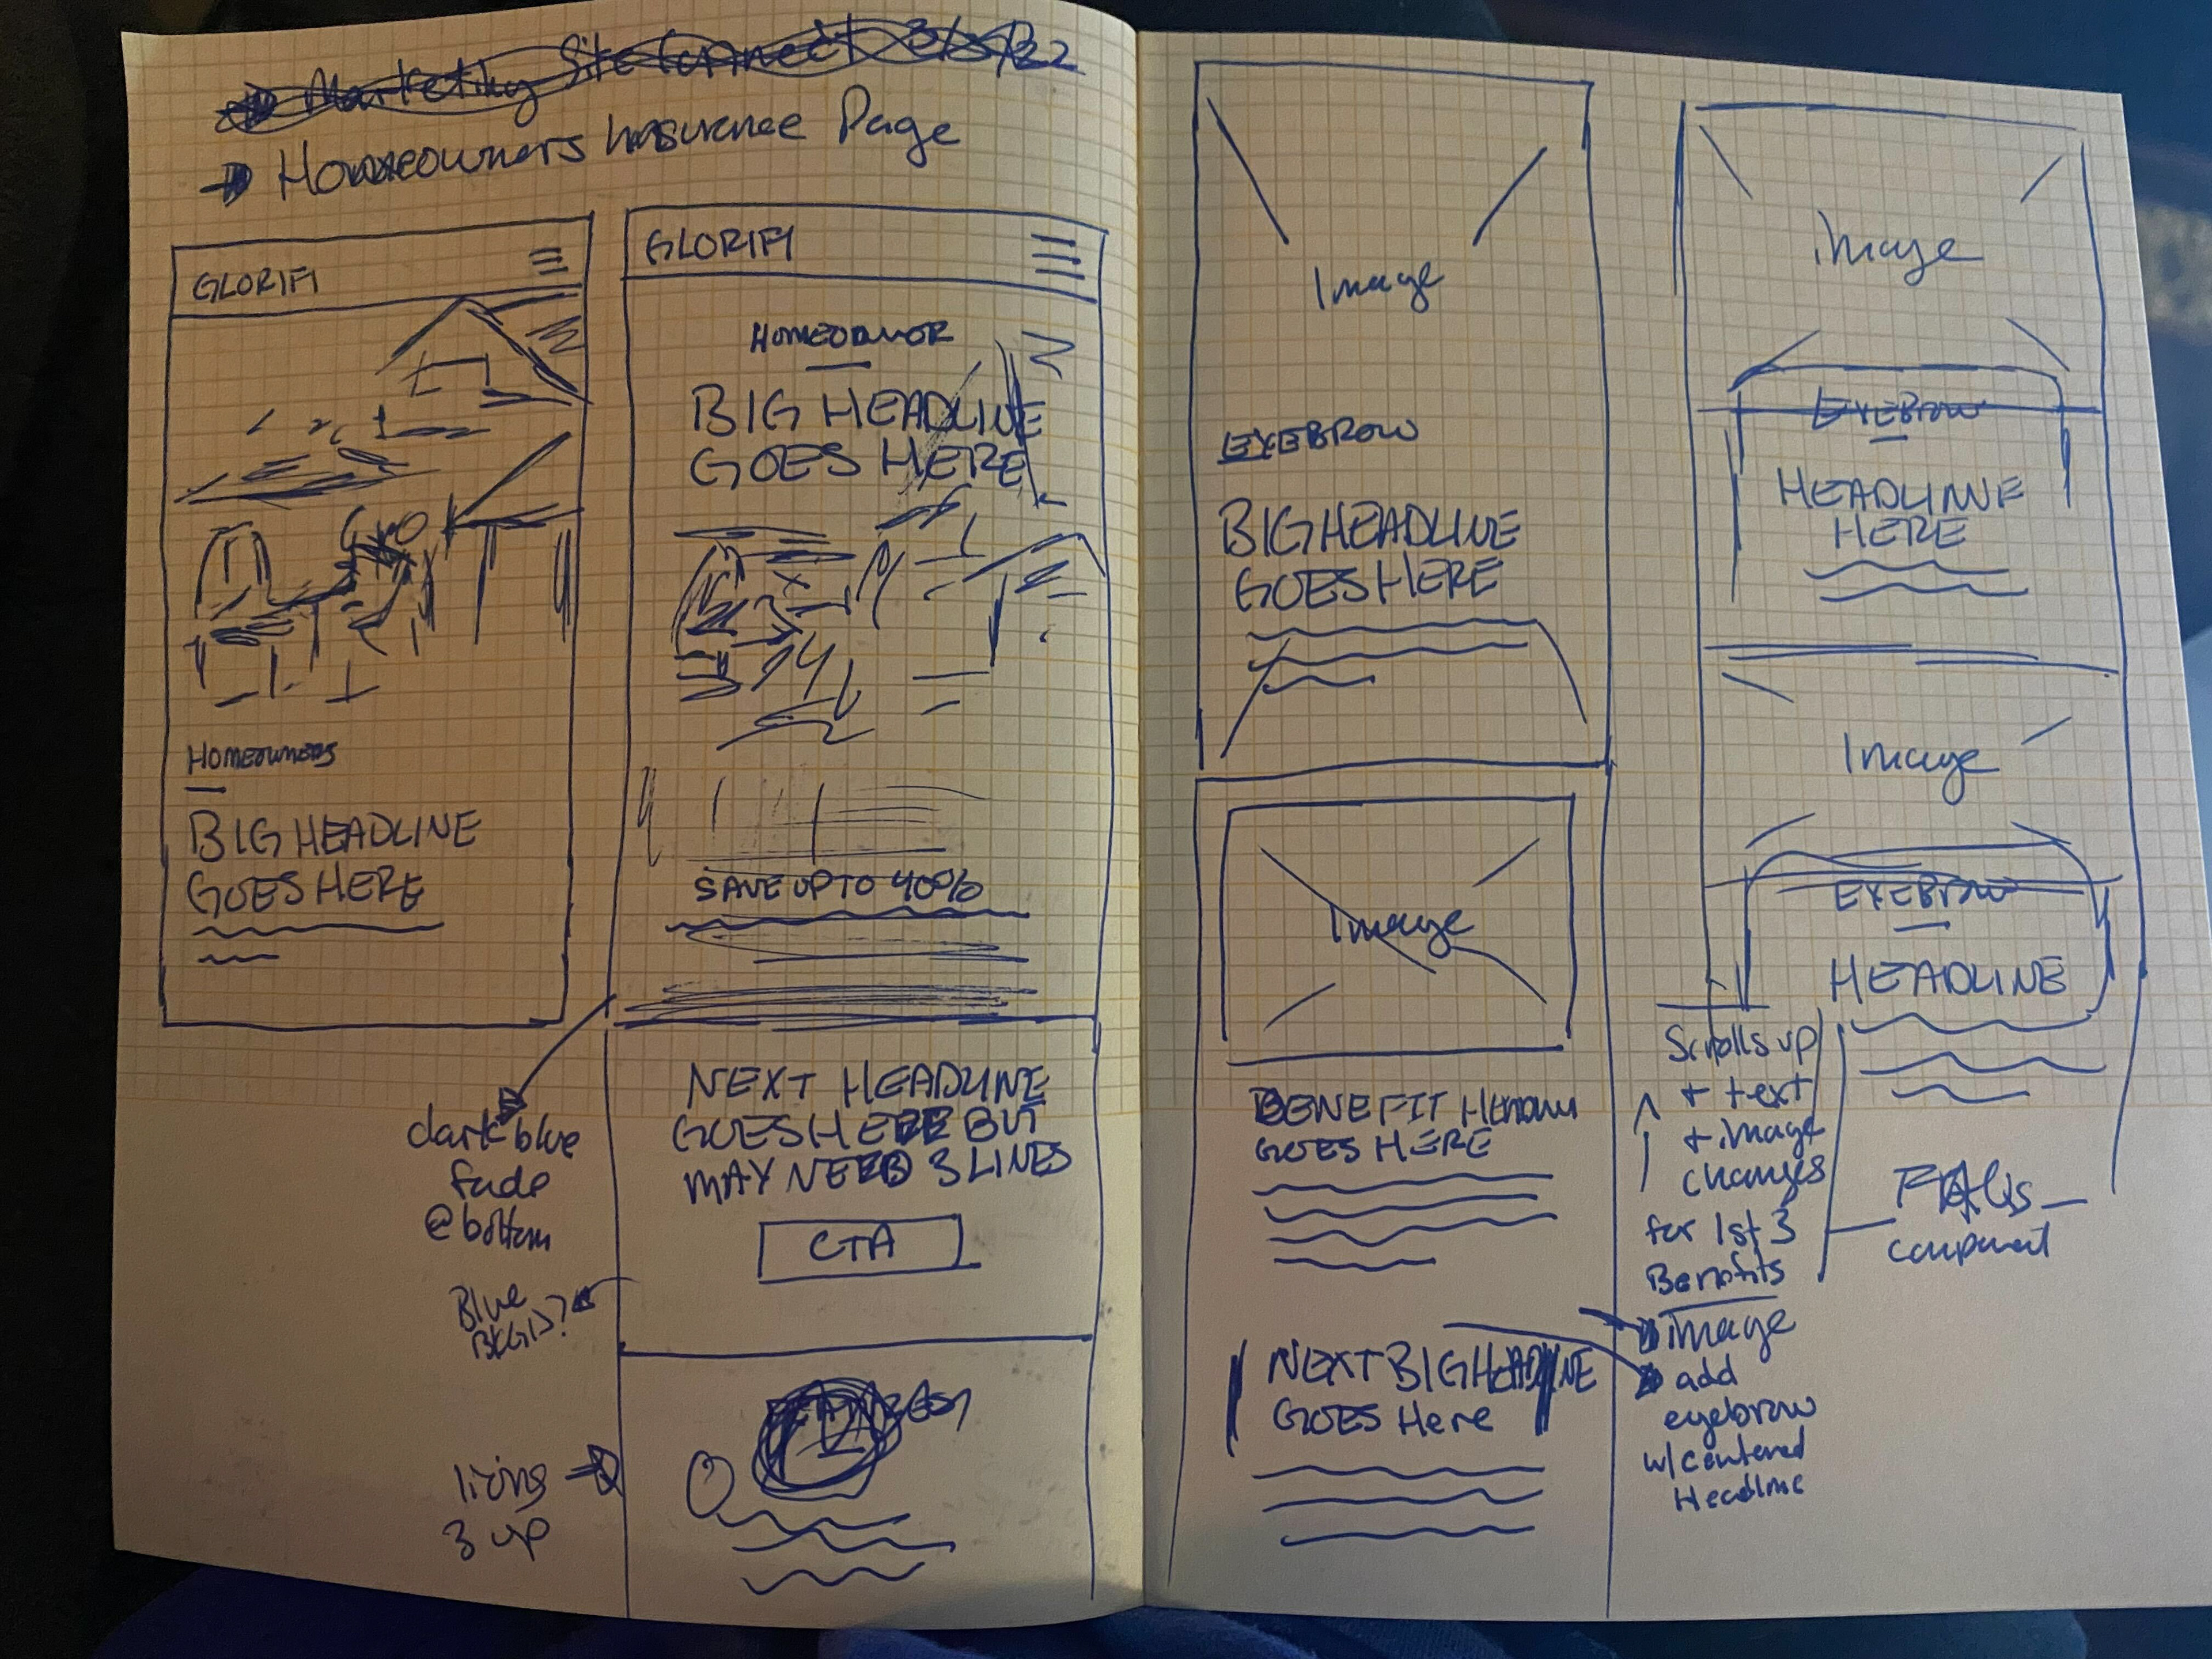 → Marketing Site Connect
→ Homeowners Insurance Page
GLORIFI
HOMEOWNERS
BIG HEADLINE
GOES HERE
GLORIFI
HOMEOWNOR
BIG HEADLINE
GOES HERE
SAVE UP TO 40%
dark blue
fade
@ bottom
NEXT HEADLINE
GOES HERE BUT
MAY NEED 3 LINES
CTA
Blue
BKGD?
3 up
Image
EYEBROW
BIG HEADLINE
GOES HERE
Image
BENEFIT
GOES HERE
NEXT BIG HEADLINE
GOES Here
image
EYEBROW
HEADLINNE
HERE
Image
EYEBROW
HEADLINE
Scrolls up
+ text
+ image
changes
for 1st 3
Benefits
image
add
eyebrow
w/ centered
Headline
component